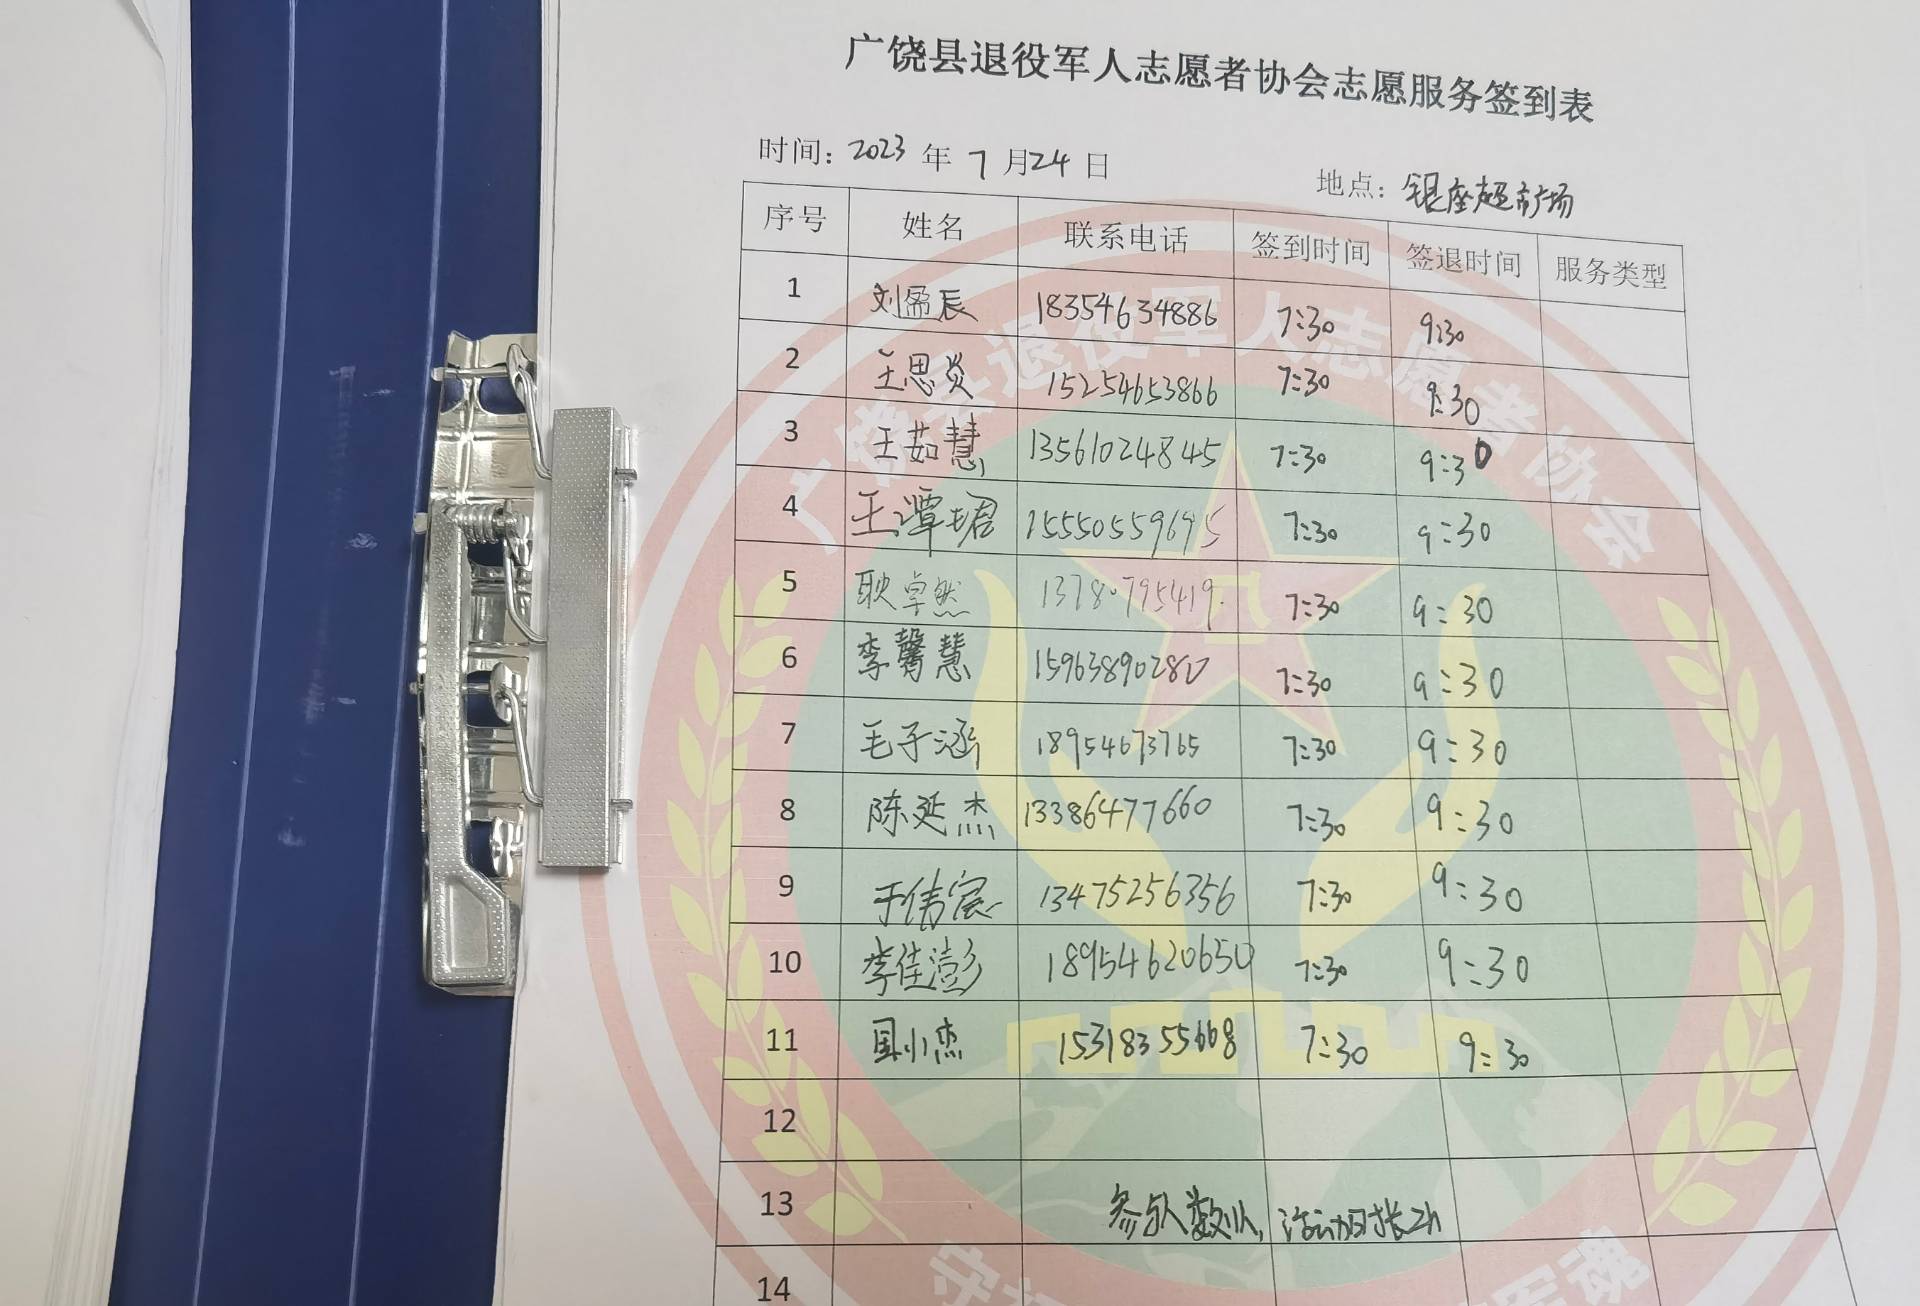 广饶县退役军人志愿者协会志愿服务签到表
时间: 2023 年 7 月 24 日 地点: 银座超市广场
序号 姓名 联系电话 签到时间 签退时间 服务类型
1 刘盈辰 18354634886 7:30 9:30
2 王思炎 15254653866 7:30 9:30
3 王茹慧 13561024845 7:30 9:30
4 王潭珺 15550559695 7:30 9:30
5 耿卓然 13780795419 7:30 9:30
6 李馨慧 15963890280 7:30 9:30
7 毛子涵 18954673765 7:30 9:30
8 陈延杰 13386477660 7:30 9:30
9 于倩宸 13475256356 7:30 9:30
10 李佳澎 18954620650 7:30 9:30
11 国小杰 15318355668 7:30 9:30
12
13 参与人数11人, 活动时长2h
14
广饶县退役军人志愿者协会
守 军魂